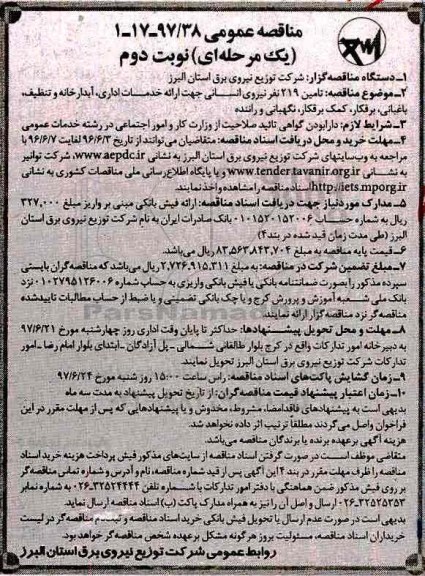 مناقصه عمومی ۹۷/۳۸-۱۷-۱
(یک مرحله‌ای) نوبت دوم
۱-دستگاه مناقصه‌گزار: شرکت توزیع نیروی برق استان البرز
۲-موضوع مناقصه: تامین ۲۱۹ نفر نیروی انسانی جهت ارائه خدمات اداری، آبدارخانه و تنظیف،
باغبانی، برقکار، کمک برقکار، نگهبانی و راننده
۳-شرایط لازم: دارا بودن گواهی تائید صلاحیت از وزارت کار و امور اجتماعی در رشته خدمات عمومی
۴-مهلت خرید و محل دریافت اسناد مناقصه: متقاضیان می‌توانند از تاریخ ۹۶/۶/۳ لغایت ۹۶/۶/۷ با
مراجعه به وب‌سایتهای شرکت توزیع نیروی برق استان البرز به نشانی www.aepdc.ir، شرکت توانیر
به نشانی www.tender.tavanir.org.ir و یا پایگاه اطلاع‌رسانی ملی مناقصات کشوری به نشانی
http://iets.mporg.ir اسناد مناقصه را مشاهده و اخذ نمایند.
۵-مدارک مورد نیاز جهت دریافت اسناد مناقصه: ارائه فیش بانکی مبنی بر واریز مبلغ ۳۲۷,۰۰۰
ریال به شماره حساب ۰۱۰۱۵۲۰۱۵۲۰۰۶ بانک صادرات ایران به نام شرکت توزیع نیروی برق استان
البرز (طی مدت زمان قید شده در بند ۴)
۶-قیمت پایه مناقصه به مبلغ ۸۳,۵۶۳,۸۴۳,۷۰۴ ریال می‌باشد.
۷-مبلغ تضمین شرکت در مناقصه: به مبلغ ۲,۷۲۶,۹۱۵,۳۱۱ ریال می‌باشد که مناقصه‌گران بایستی
سپرده مذکور را بصورت ضمانتنامه بانکی یا فیش بانکی واریزی به حساب شماره ۰۱۰۲۷۹۵۱۲۶۰۰۶ نزد
بانک ملی شعبه آموزش و پرورش کرج و یا چک بانکی تضمینی و یا ضبط از حساب مطالبات تایید شده
مناقصه‌گر نزد مناقصه‌گزار ارائه نمایند.
۸-مهلت و محل تحویل پیشنهادها: حداکثر تا پایان وقت اداری روز چهارشنبه مورخ ۹۷/۶/۲۱
به دبیرخانه امور تدارکات واقع در کرج بلوار طالقانی شمالی-پل آزادگان-ابتدای بلوار امام رضا-امور
تدارکات شرکت توزیع نیروی برق استان البرز تحویل نمایند.
۹-زمان گشایش پاکت‌های اسناد مناقصه: راس ساعت ۱۵:۰۰ روز شنبه مورخ ۹۷/۶/۲۴
۱۰-زمان اعتبار پیشنهاد قیمت مناقصه‌گران: از تاریخ تحویل پیشنهاد به مدت سه ماه
بدیهی است به پیشنهادهای فاقد امضا، مشروط، مخدوش و یا پیشنهادهایی که پس از مهلت مقرر در این
فراخوان واصل می‌گردند مطلقا ترتیب اثر داده نخواهد شد.
هزینه آگهی برعهده برنده یا برندگان مناقصه می‌باشد.
متقاضی موظف است در صورت گرفتن اسناد مناقصه از سایت‌های مذکور فیش پرداخت هزینه خرید اسناد
مناقصه را ظرف مهلت مقرر در بند ۴ این آگهی پس از قید شماره مناقصه، نام و آدرس و شماره تماس مناقصه‌گر
بر روی فیش مذکور ضمن هماهنگی با دفتر امور تدارکات با شماره تلفن ۳۲۵۲۴۴۴۴-۰۲۶ به شماره نمابر
۳۲۵۲۵۲۵۳-۰۲۶ ارسال و اصل آن را نیز به همراه مدارک پاکت (ب) اسناد مناقصه ارسال نماید.
بدیهی است در صورت عدم ارسال یا تحویل فیش بانکی خرید اسناد مناقصه و ثبت نام مناقصه‌گر در لیست
خریداران اسناد مناقصه، مسئولیت بروز هرگونه مشکل برعهده شخص مناقصه‌گر خواهد بود.
روابط عمومی شرکت توزیع نیروی برق استان البرز